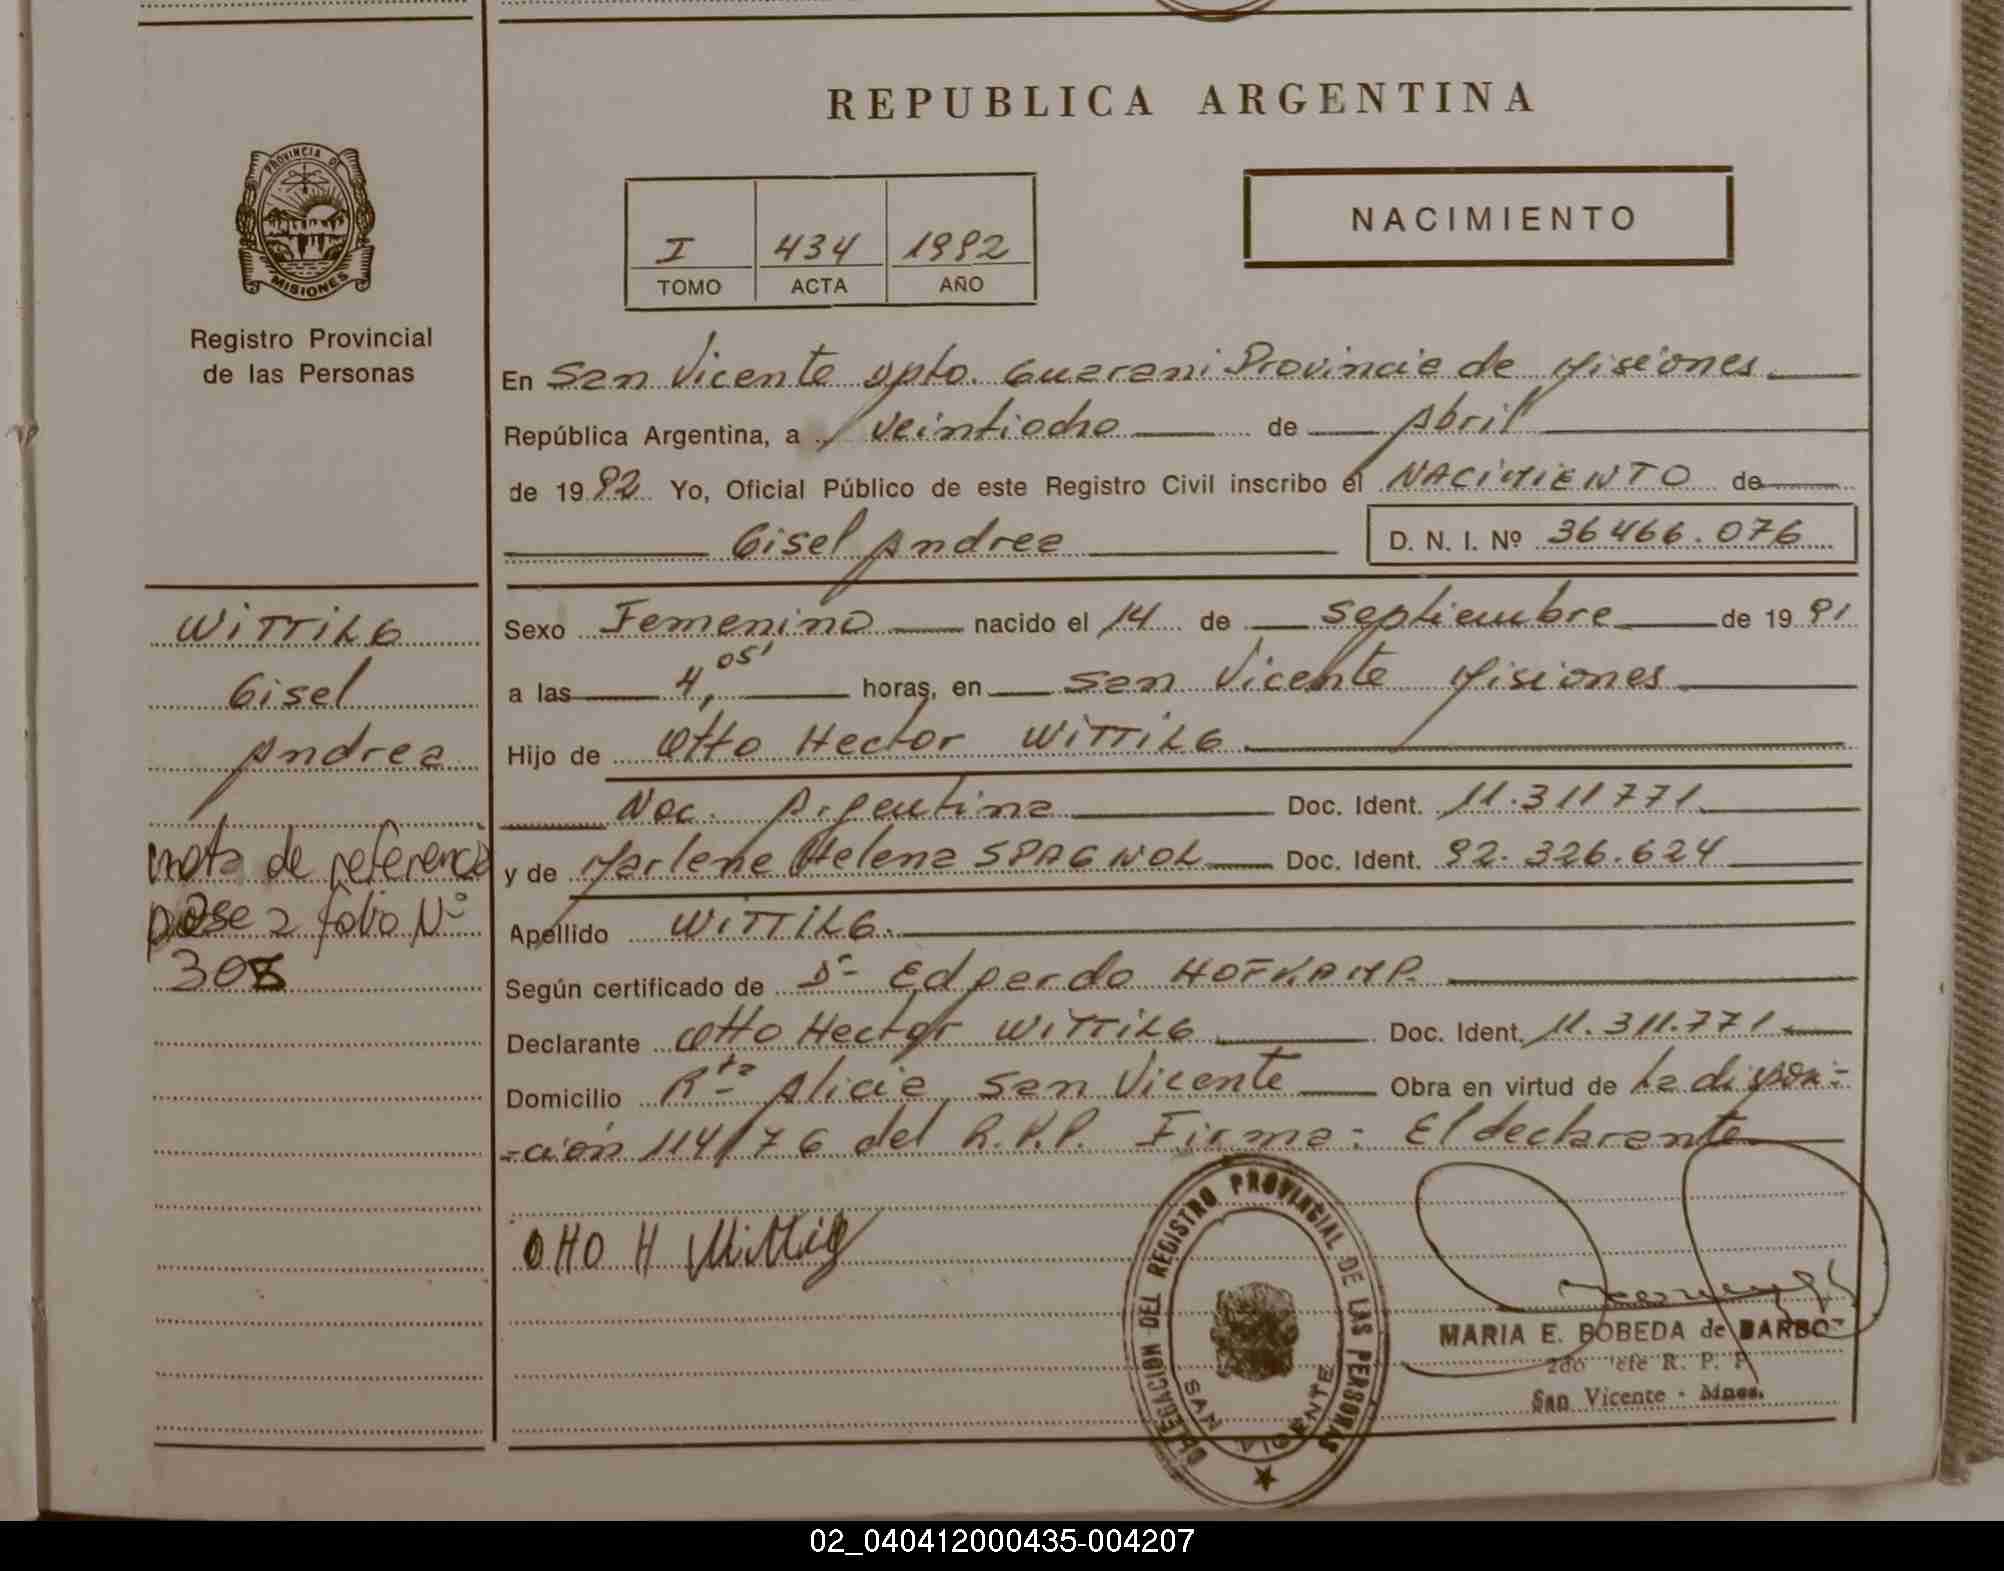 REPUBLICA ARGENTINA
PROVINCIA DE
MISIONES
Registro Provincial
de las Personas
I 434 1992
TOMO ACTA AÑO
NACIMIENTO
En San Vicente Dpto. Guarani Provincia de Misiones
República Argentina, a veintiocho de Abril
de 1992 Yo, Oficial Público de este Registro Civil inscribo el NACIMIENTO de
Gisel Andrea D. N. I. Nº 36466.076
WITTIKG
Gisel
Andrea
nota de referencia
pase a folio Nº
Sexo Femenino nacido el 14 de septiembre de 1991
a las 4,05' horas, en San Vicente Misiones
Hijo de Otto Hector WITTIKG
Nac. Argentina Doc. Ident. 11.311771
y de Marlene Helena SPAGNOL Doc. Ident. 92.326.624
Apellido WITTIKG.
Según certificado de Dr Edgardo HOFKAMP.
Declarante Otto Hector WITTIKG Doc. Ident. 11.311.771
Domicilio Rta Alicia San Vicente Obra en virtud de La disposi-
-ción 114/76 del R.P.P. Firma: El declarante
Otto H Wittig
DELEGACION DEL REGISTRO PROVINCIAL DE LAS PERSONAS
SAN VICENTE
MARIA E. BOBEDA de BARBO
2do Jefe R. P. P
San Vicente - Mnes.
02_040412000435-004207